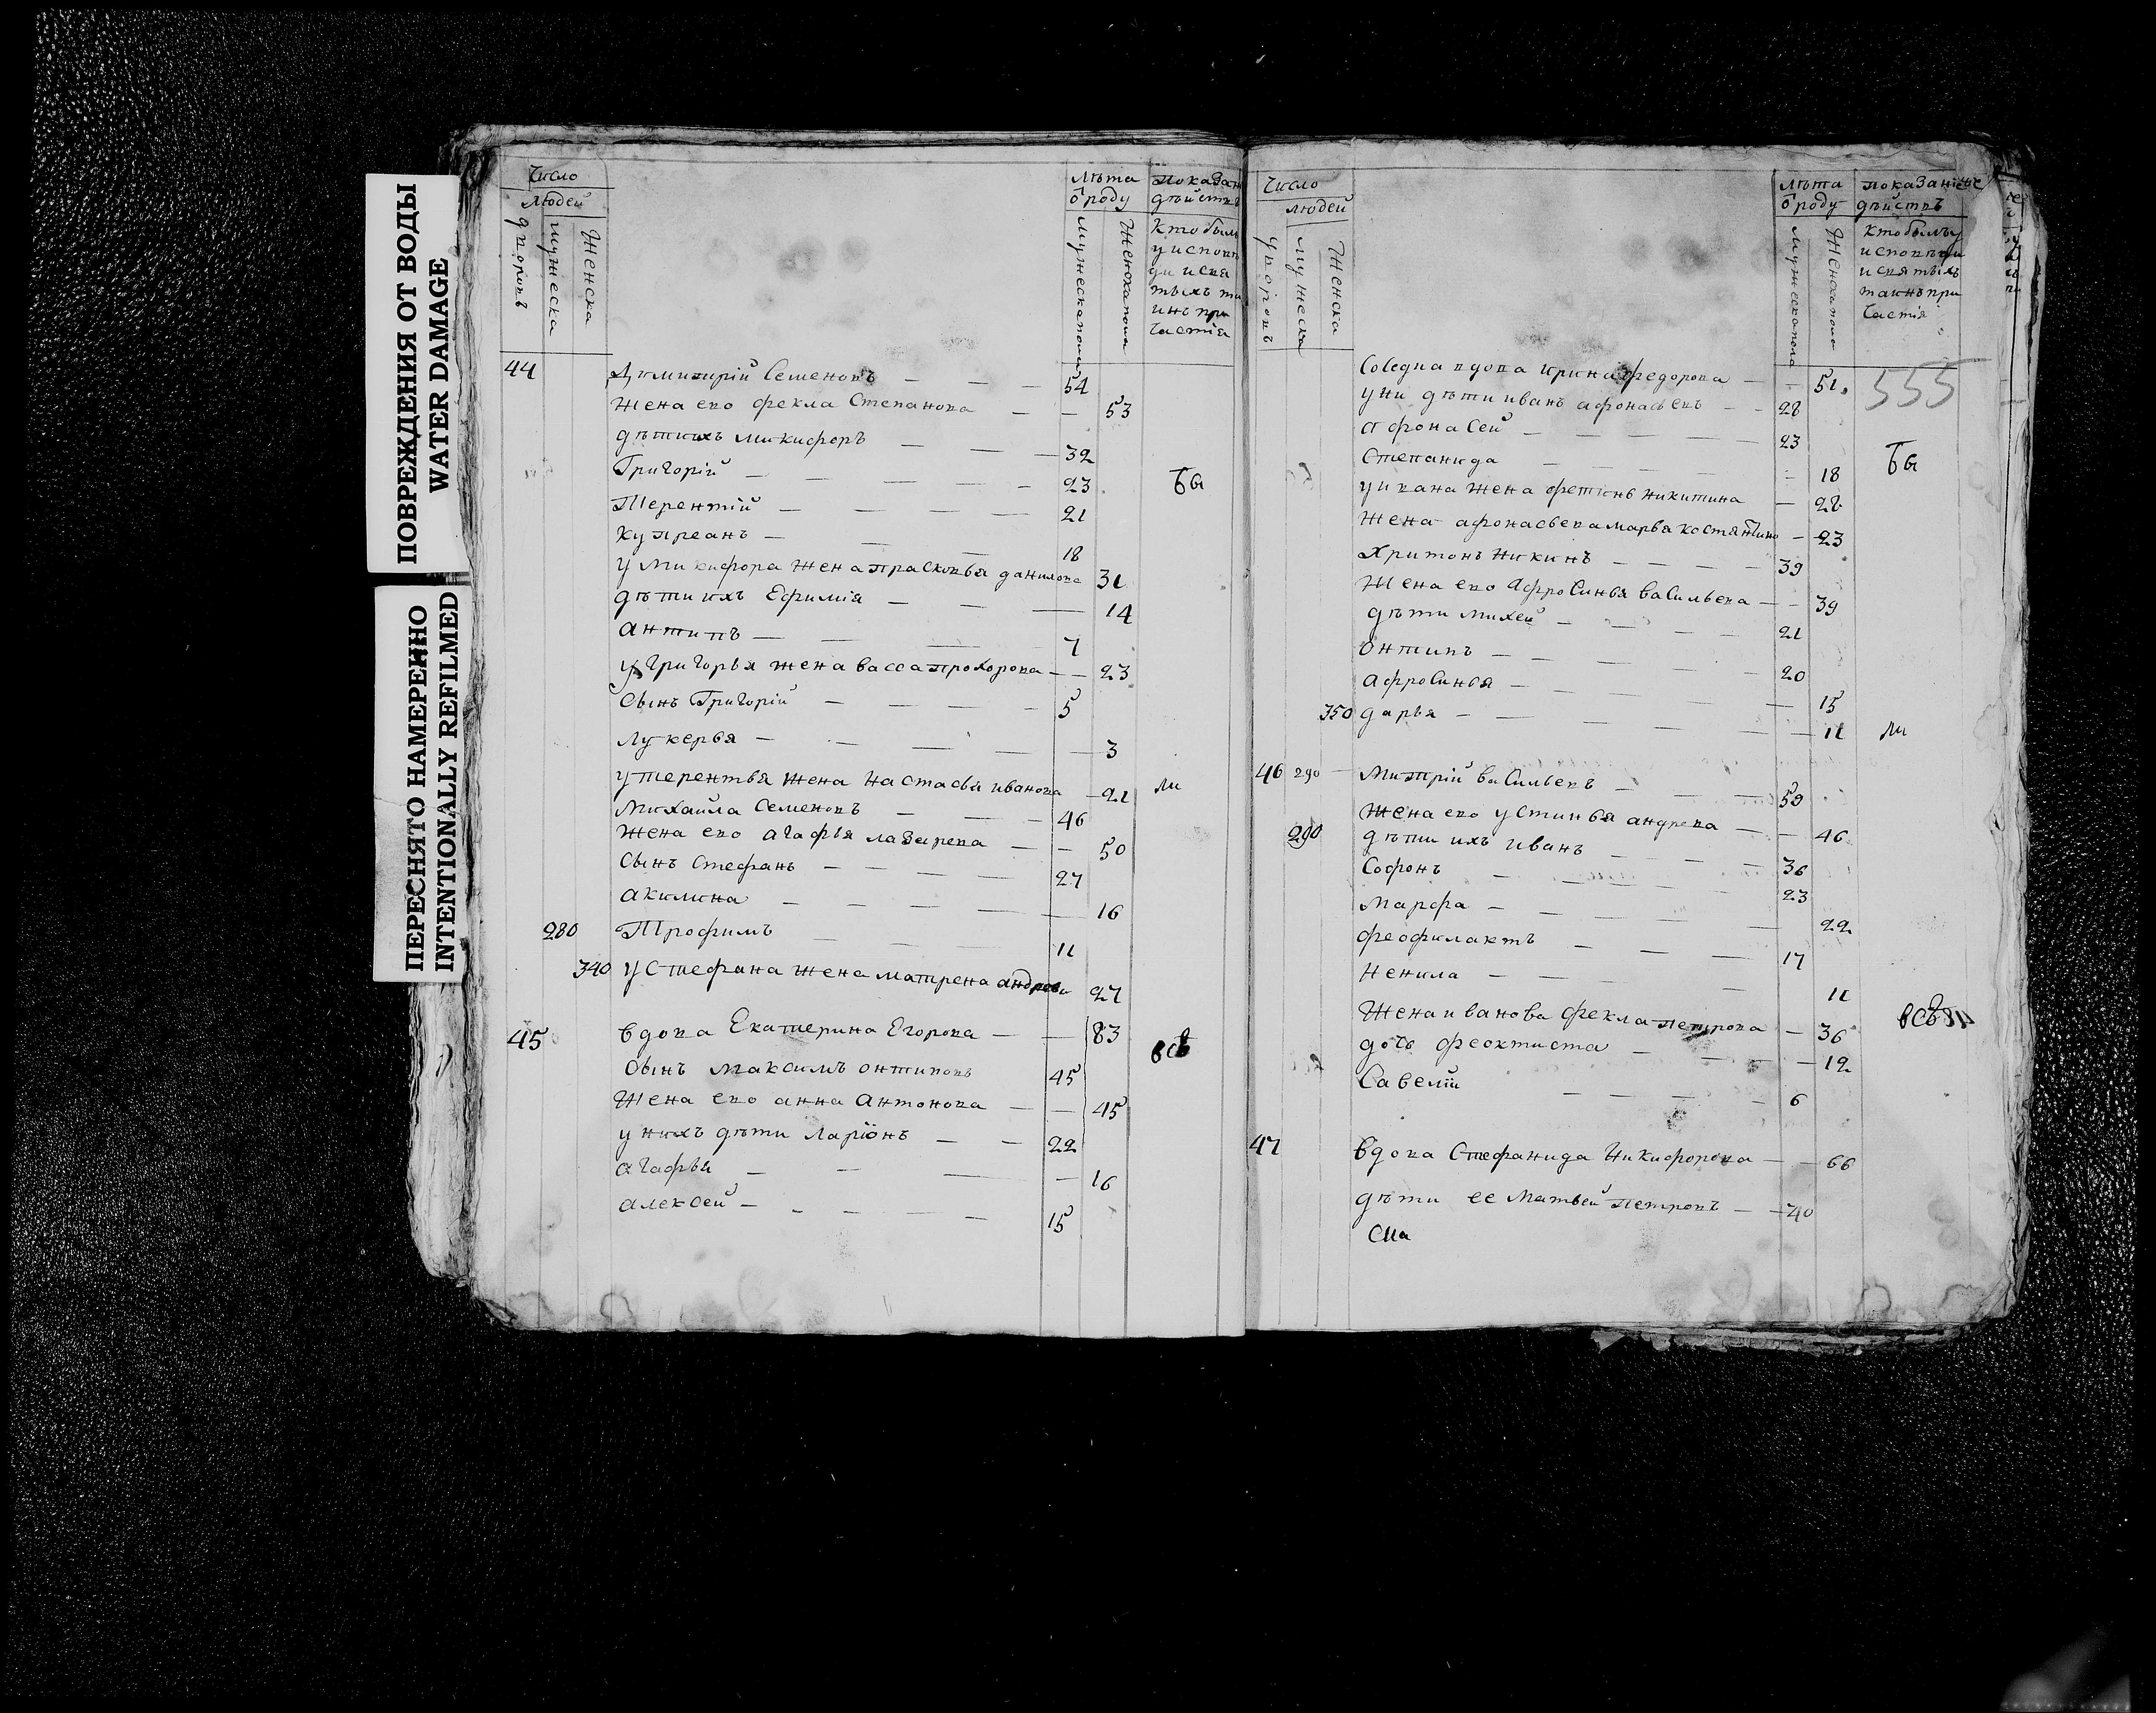 ПОВРЕЖДЕНИЯ ОТ ВОДЫ
WATER DAMAGE
ПЕРЕСНЯТО НАМЕРЕННО
INTENTIONALLY REFILMED
Число
людей
дворовъ
мужеска
Женска
лѣта
ѿроду
мужеска пола
Женска пола
показан
дѣйств
Кто был
у испов
ди и свя
тыхъ та
инъ при
частия
44 Димитрій Семеновъ — — — 54
Жена ево фекла Степанова — — 53
дѣти ихъ микифоръ — — — 32
Григорій — — — — — 23
Бы
Терентій — — — — 21
купреанъ — — — 18
у Микифора жена прасковья данилова 31
дѣти ихъ Ефимія — — — 14
антипъ — — — 7
у григорья жена васса прохорова — — 23
Сынъ Григорій — — — — 5
лукерья — — — — — 3
у терентья жена настасья иванова — 21
ли
михаила Семеновъ — — — 46
жена ево агафья лазарева — — 50
Сынъ Стефанъ — — — — 27
акилина — — — — — 16
280 Трофимъ — — — — 11
340 у Стефана жена матрена андрева 27
45 вдова Екатерина Егорова — — 83
всѣ
Сынъ максимъ онтиповъ 45
Жена ево анна антонова — — 45
у нихъ дѣти ларіонъ — — 22
агафья — — — — 16
алексей — — — — — 15
Число
людей
дворовъ
мужеска
Женска
лѣта
ѿроду
мужеска пола
Женска пола
показание
дѣйствъ
Кто былъ у
исповѣди
и святыхъ
таинъ при
частия
555
Соседка вдова ирина федорова — — 51
у ни дѣти иванъ афонасьевъ — — 28
афонасей — — — — 23
Степанида — — — — 18
Бы
у ивана жена фетинь никитина — 28
жена афонасьева марья костянтино — 23
Хритонъ никинъ — — — — 39
Жена ево афросинья васильева — — 39
дѣти михей — — — — 21
Онтипъ — — — — — 20
афросинья — — — — — 15
350 дарья — — — — — — 11
ли
46 290 — митрій васильевъ — — — 59
жена ево устинья андрева — — 46
290 дѣти ихъ иванъ — — — 36
Софонъ — — — — — 23
марфа — — — — — 22
феофилактъ — — — — 17
ненила — — — 11
Жена иванова фекла петрова — 36
всѣ
дочь феоктиста — — — — 12
Савелій — — — — — 6
47 вдова Стефанида никифорова — — 66
дѣти ее матвей петровъ — — 40